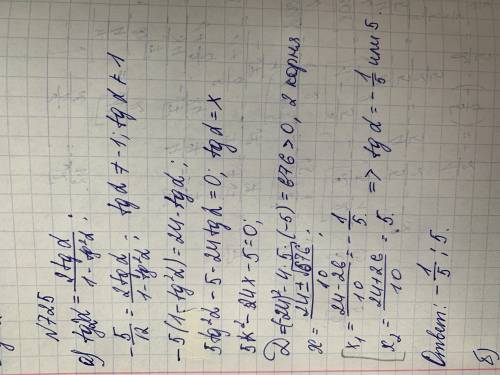 N725
а) tg2α = 2tgα / 1 - tg²α ;
-5/12 = 2tgα / 1 - tg²α ; tgα ≠ -1; tgα ≠ 1
-5(1-tg²α) = 24·tgα ;
5tg²α - 5 - 24tgα = 0; tgα = x
5x² - 24x - 5 = 0;
D = (-24)² - 4·5·(-5) = 676 > 0, 2 корня
x = 24 ± √676 / 10 ;
x₁ = 24-26 / 10 = -1/5
x₂ = 24+26 / 10 = 5. => tgα = -1/5 или 5.
Ответ: -1/5 ; 5.
б)